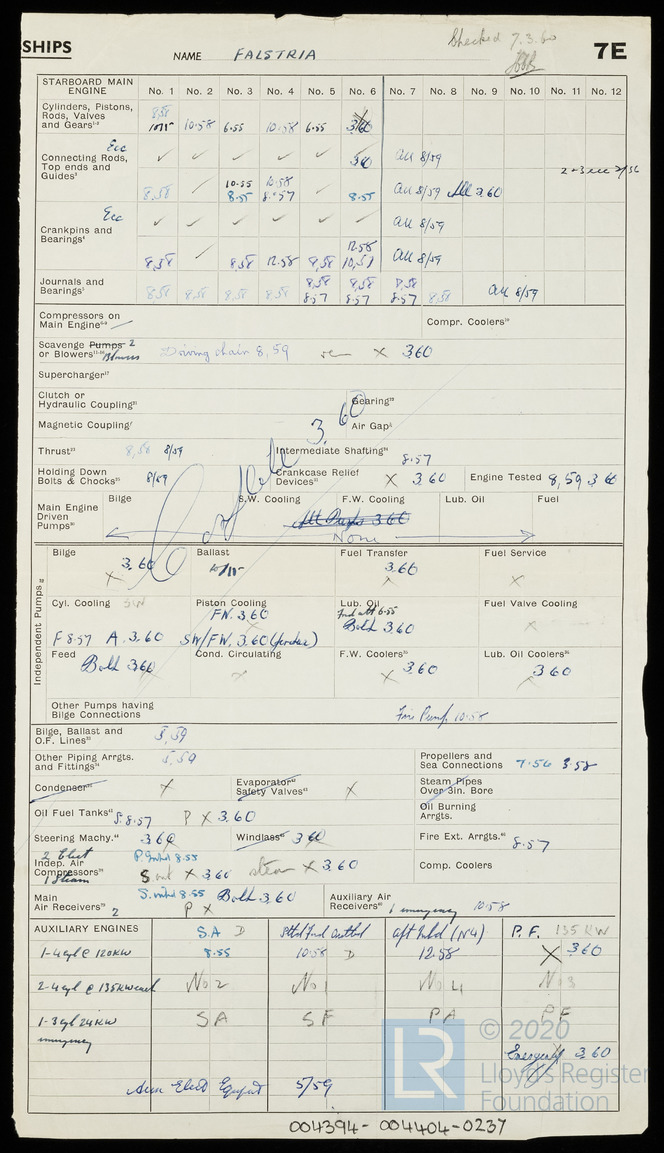 SHIPS
NAME FALSTRIA
Checked 7.3.60
7E
STARBOARD MAIN ENGINE No. 1 No. 2 No. 3 No. 4 No. 5 No. 6 No. 7 No. 8 No. 9 No. 10 No. 11 No. 12
Cylinders, Pistons, Rods, Valves and Gears
8,58 10.58 6.55 10.58 6.55 3.60
Ecc
Connecting Rods, Top ends and Guides
3.60 All 8/59
10.55 10.58
8,58 8.55 8.57 8.55 All 8/59 All 3.60
Ecc
All 8/59
Crankpins and Bearings
12.58
8,58 8,58 12.58 8,58 10,58 All 8/59
Journals and Bearings
8,58 8,58 8,58
8,58 8,58 8,58 8,58 8.57 8.57 8.57 8,58 All 8/59
Compressors on Main Engine
Compr. Coolers
Scavenge Pumps 2 or Blowers Blowers Driving chain 8,59 X 3.60
Supercharger
Clutch or Hydraulic Coupling
Gearing
Magnetic Coupling
Air Gap
3.60
Thrust 8,58 8/59
Intermediate Shafting 8.57
Holding Down Bolts & Chocks 8/59
Crankcase Relief Devices X 3.60
Engine Tested 8,59 3.60
Main Engine Driven Pumps
Bilge S.W. Cooling F.W. Cooling Lub. Oil Fuel
All Pumps 3.60
None
Complete
Independent Pumps
Bilge Ballast Fuel Transfer Fuel Service
X 3.60 3.60 X X
Cyl. Cooling SW Piston Cooling Lub. Oil Fuel Valve Cooling
FW. 3.60
F 8.57 A. 3.60 SW/FW. 3.60 Both 3.60 X
Feed Cond. Circulating F.W. Coolers Lub. Oil Coolers
Both 3.60 X 3.60 3.60
Other Pumps having Bilge Connections
Fire Pump 10.58
Bilge, Ballast and O.F. Lines 5,59
Other Piping Arrgts. and Fittings 5,59
Propellers and Sea Connections 7.56 3.58
Condenser X
Evaporator Safety Valves X
Steam Pipes Over 3in. Bore
Oil Fuel Tanks S.8.57 P X 3.60
Oil Burning Arrgts.
Steering Machy. 3.60
Windlass 3.60
Fire Ext. Arrgts. 8.57
2 Elect
Indep. Air Compressors
1 Steam
P. inbd 8.55
S out X 3.60 steam X 3.60
Comp. Coolers
Main Air Receivers 2
S. inbd 8.55 Both 3.60
P X
Auxiliary Air Receivers
1 emergency 10.58
AUXILIARY ENGINES S.A D Stbd Fwd Outbd Aft Inbd (No4) P.F. 135 KW
1-4 cyl @ 120KW 8.55 10.58 D 12.58 X 3.60
2-4 cyl @ 135KW each No 2 No 1 No 4 No 3
1-3 cyl 24KW SA SF PA PF
emergency
Emergency 3.60
Aux Elect Equipt 5/59
LR
© 2020
Lloyd's Register
Foundation
004394-004404-0237